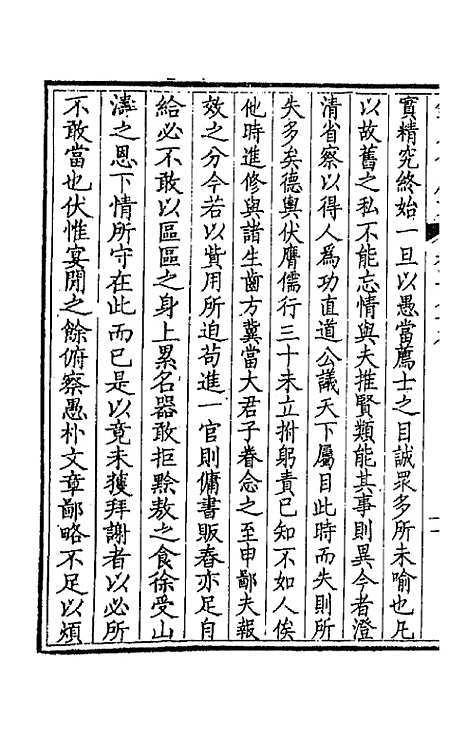 實精究終始一旦以愚當薦士之目誠眾多所未喻也凡
以故舊之私不能忘情與夫推賢類能其事則異今者澄
清省察以得人爲功直道公議天下屬目此時而失則所
失多矣德輿伏膺儒行三十未立拊躬責已知不如人俟
他時進修與諸生齒方冀當大君子眷念之至申鄙夫報
效之分今若以貲用所迫苟進一官則傭書販舂亦足自
給必不敢以區區之身上累名器敢拒黔敖之食徐受山
濤之恩下情所守在此而已是以竟未獲拜謝者以必所
不敢當也伏惟宴閒之餘俯察愚朴文章鄙略不足以煩